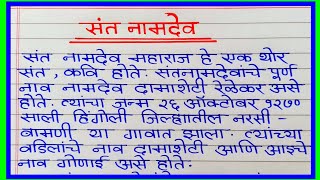 संत नामदेव
संत नामदेव महाराज हे एक थोर
संत, कवि होते. संतनामदेवांचे पुर्ण
नाव नामदेव दामाशेटी रेळेकर असे
होते. त्यांचा जन्म २६ ऑक्टोबर १२७०
साली हिंगोली जिल्ह्यातील नरसी -
बामणी या गावात झाला. त्यांच्या
वडिलांचे नाव दामाशेटी आणि आईचे
नाव गोणाई असे होते.